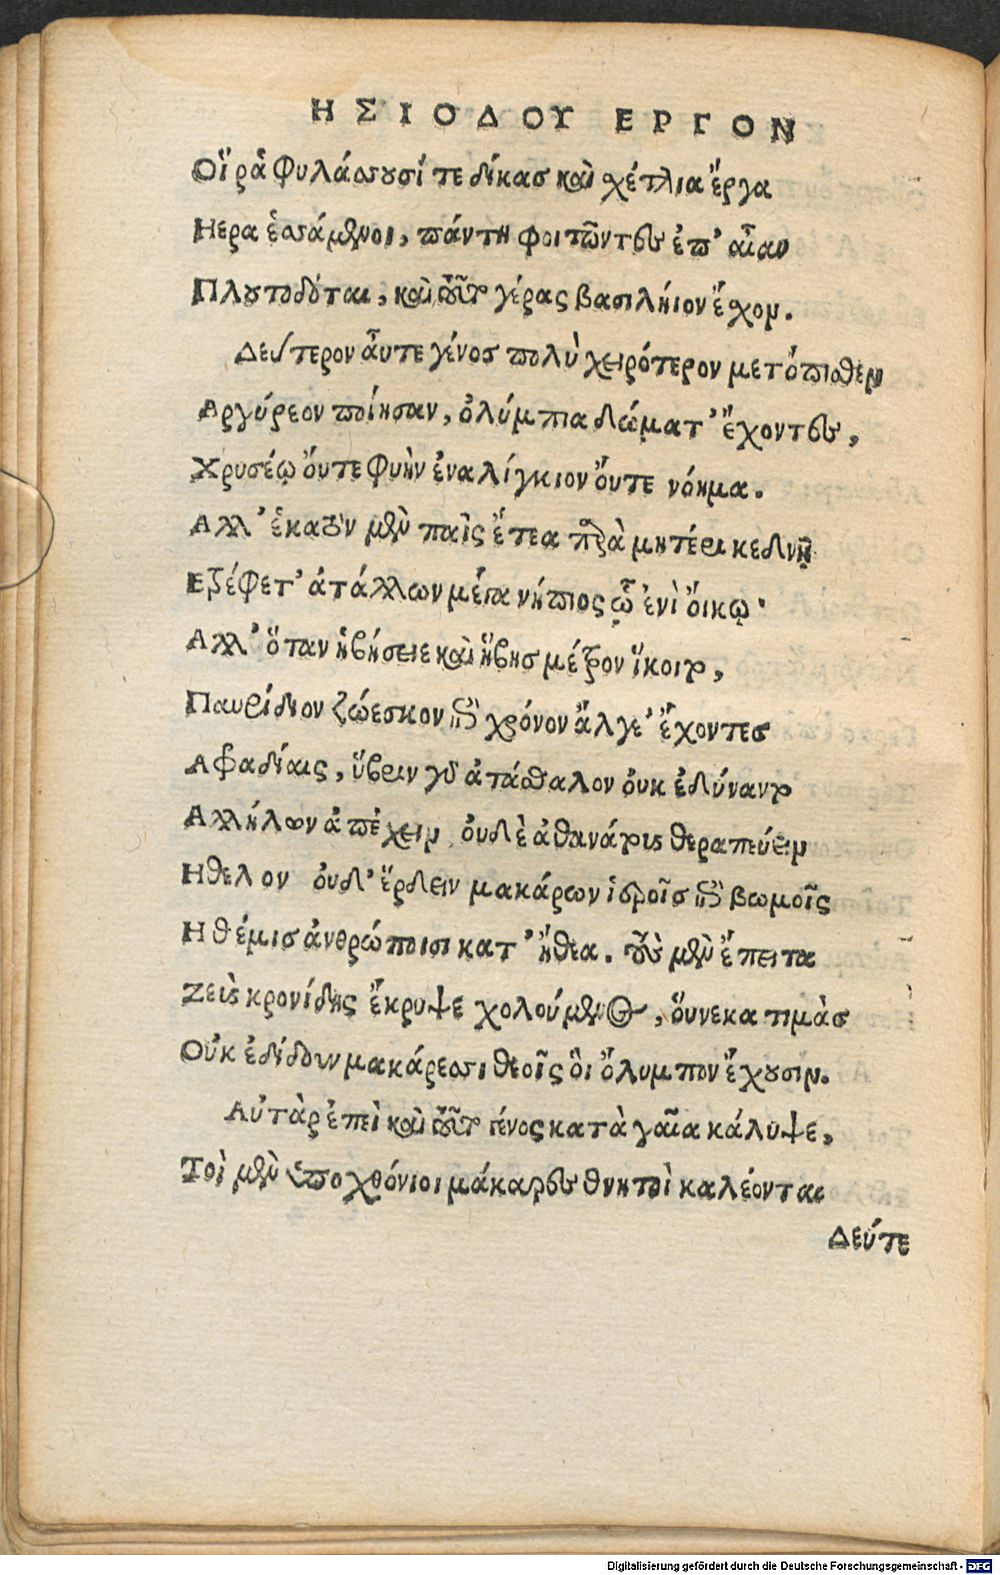 ΗΣΙΟΔΟΥ ΕΡΓΟΝ
Οἵ ῥὰ φυλάσσουσί τε δίκας καὶ χέτλια ἔργα
Ηερα ἑσσάμενοι, πάντη φοιτῶντες ἐπ' αἶαν
Πλουτοδόται, καὶ τοῦτο γέρας βασιλήιον ἔχον.
Δεύτερον αὖτε γένος πολὺ χειρότερον μετόπισθεν
Αργύρεον ποίησαν, ὀλύμπια δώματ' ἔχοντες,
Χρυσέῳ ὄυτε φυὴν ἐναλίγκιον ὄυτε νόημα.
Αλλ' ἑκατὸν μὲν παῖς ἔτεα παρὰ μητέρι κεδνῇ
Ετρέφετ' ἀτάλλων μέγα νήπιος ᾧ ἐνὶ ὄικῳ·
Αλλ' ὅταν ἡβήσειε καὶ ἥβης μέτρον ἵκοιτο,
Παυρίδιον ζώεσκον ἐπὶ χρόνον ἄλγε' ἔχοντες
Αφραδίαις, ὕβριν γὰρ ἀτάσθαλον ὀυκ ἐδύναντο
Αλλήλων ἀπέχειν ὀυδὲ ἀθανάτους θεραπεύειν
Ηθελον ὀυδ' ἔρδειν μακάρων ἱεροῖς ἐπὶ βωμοῖς
Η θέμις ἀνθρώποισι κατ' ἤθεα. τοὺς μὲν ἔπειτα
Ζεὺς κρονίδης ἔκρυψε χολούμενος, ὅυνεκα τιμὰς
Οὐκ ἐδίδουν μακάρεσσι θεοῖς ὃι ὄλυμπον ἔχουσιν.
Αὐτὰρ ἐπεὶ καὶ τοῦτο γένος κατὰ γαῖα κάλυψε,
Τοὶ μὲν ὑποχθόνιοι μάκαρες θνητοὶ καλέονται
Δεύτε
Digitalisierung gefördert durch die Deutsche Forschungsgemeinschaft - DFG